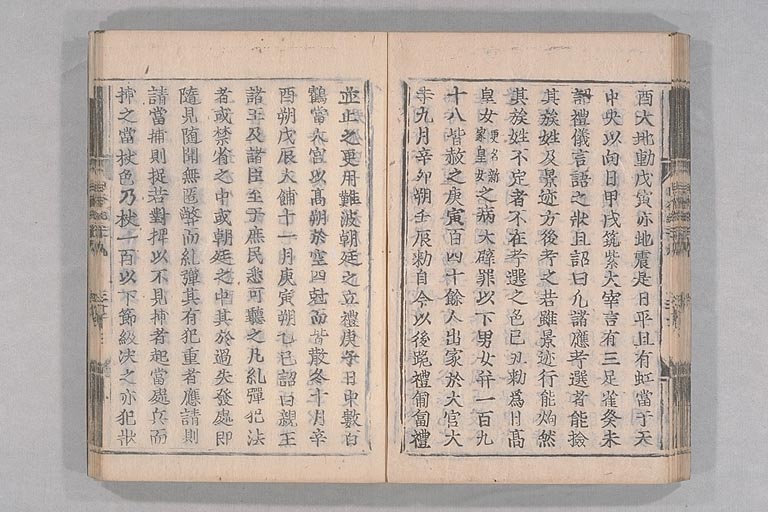 酉大地動戊寅亦地震是日平旦有虹當于天
中央以向日甲戌筑紫大宰言有三足雀癸未
詔禮儀言語之狀且詔曰凡諸應考選者能撿
其族姓及景迹方後考之若雖景迹行能灼然
其族姓不定者不在考選之色己丑勅爲日高
皇女更名新家皇女之病大辟罪以下男女幷一百九
十八皆赦之庚寅百四十餘人出家於大官大
寺九月辛卯朔壬辰勅自今以後跪禮匍匐禮
並止之更用難波朝廷之立禮庚子日中數百
鸖當大宮以高翔於空四尅而皆散冬十月辛
酉朔戊辰大餔十一月庚寅朔乙巳詔曰親王
諸王及諸臣至于庶民悉可聽之凡糺彈犯法
者或禁省之中或朝廷之中其於過失發處即
隨見隨聞無匿弊而糺彈其有犯重者應請則
請當捕則捉若對捍以不見捕者起當處兵而
捕之當杖色乃杖一百以下節級決之亦犯狀